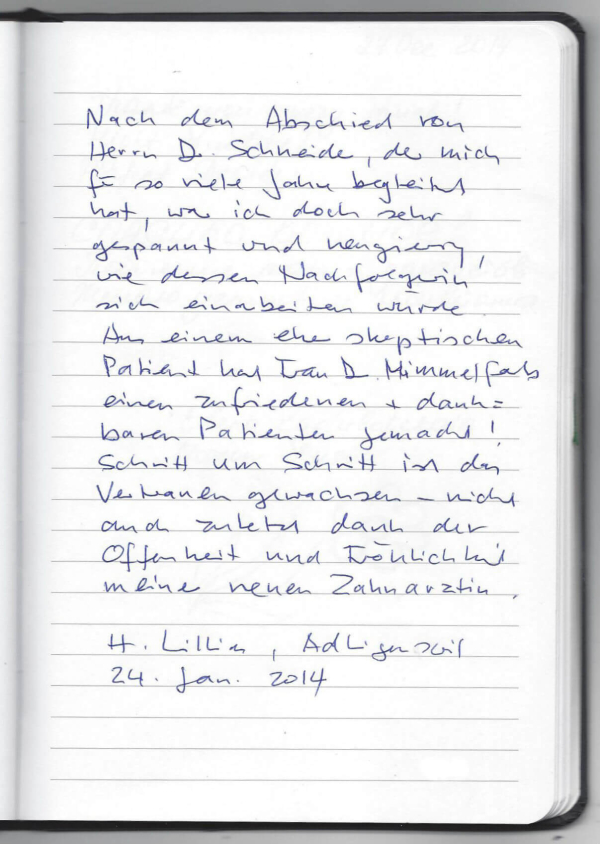 Nach dem Abschied von
Herrn D. Schneider, der mich
für so viele Jahre begleitet
hat, war ich doch sehr
gespannt und neugierig,
wie dessen Nachfolgerin
sich einarbeiten würde.
Aus einem eher skeptischen
Patient hat Frau D. Himmelfarb
einen zufriedenen + dank=
baren Patienten gemacht!
Schritt um Schritt ist das
Vertrauen gewachsen – nicht
auch zuletzt dank der
Offenheit und Fröhlichkeit
meiner neuen Zahnarztin.
H. , Adligenswil
24. Jan. 2014